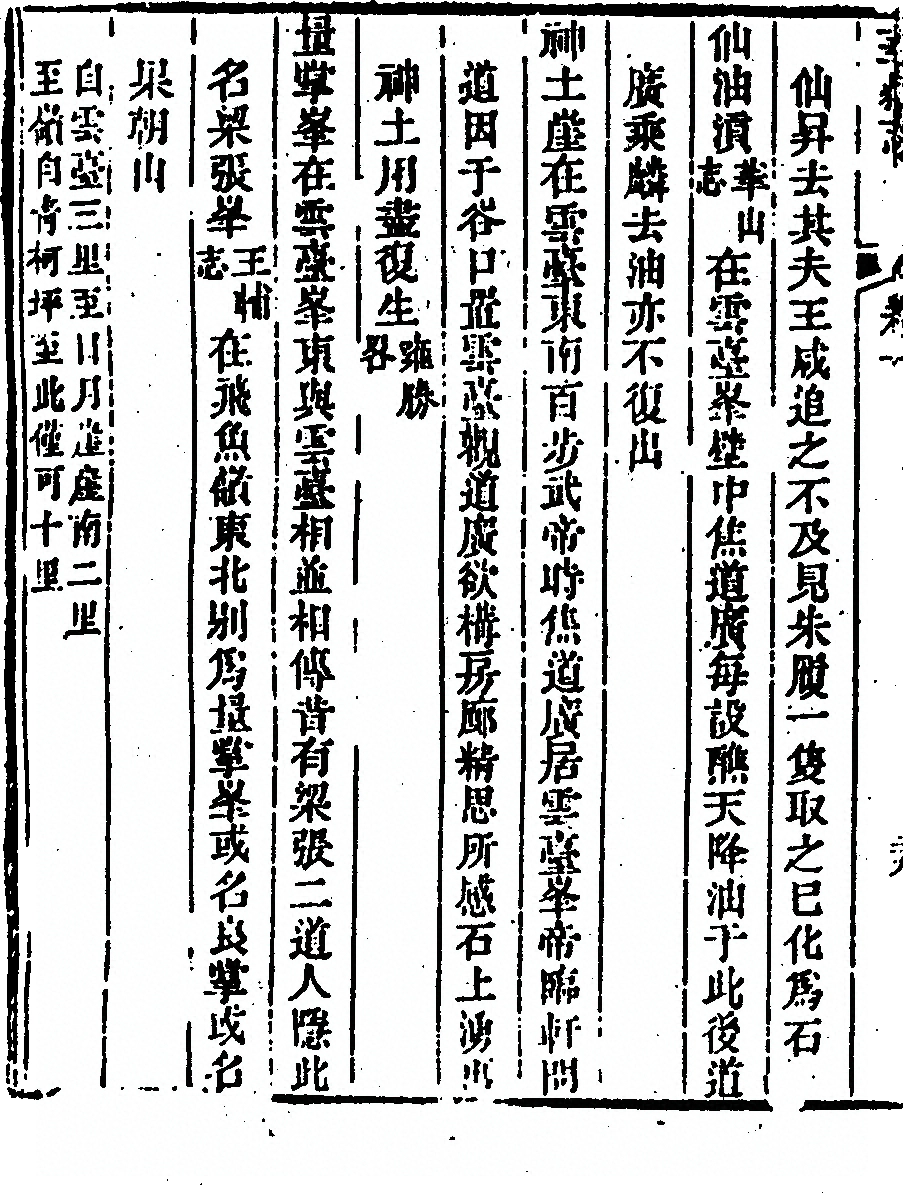 仙昇去其夫王咸追之不及見朱履一隻取之已化爲石
仙油湏華山志在雲臺峯壁中焦道廣每設醮天降油于此後道
廣乘麟去油亦不復出
神土崖在雲臺東南百步武帝時焦道廣居雲臺峯帝臨軒問
道因于谷口置雲臺觀道廣欲構房廊精思所感石上湧出
神土用盡復生
量掌峯在雲臺峯東與雲臺相並相傳昔有梁張二道人隱此
名梁張峯王輔志在飛魚嶺東北别爲量掌峯或名良掌或名
朝山
自雲臺三里至日月崖崖南二里
至嶺自靑柯坪至此僅可十里